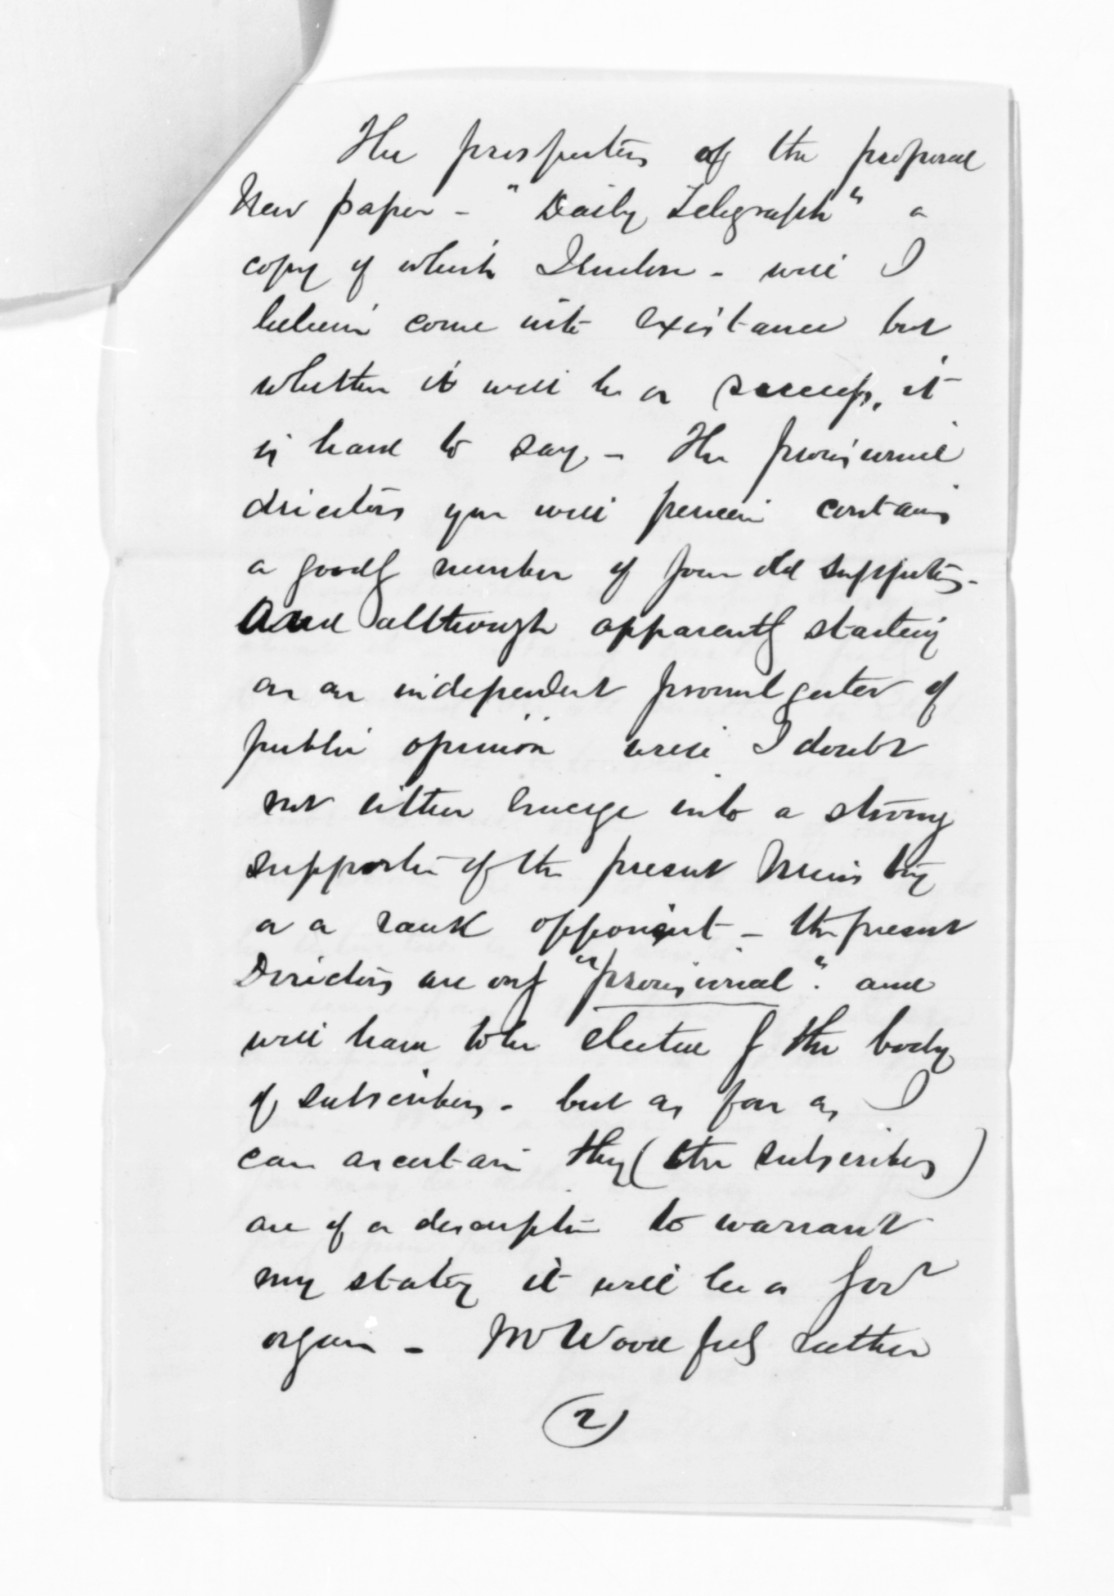 The prospectus of the proposed
New paper - "Daily Telegraph" a
copy of which I enclose - will I
believe come into existance but
whether it will be a success, it
is hard to say - The provisional
directors you will perceive contains
a goodly number of your old supporters -
And although apparently starting
as an independent promulgator of
public opinion will I doubt
not either emerge into a strong
supporter of the present Ministry
or a rank opponent - the present
Directors are only "provisional". and
will have to be elected by the body
of subscribers - but as far as I
can ascertain they (the subscribers)
are of a description to warrant
my stating it will be a Govt
organ - Mr Wood feels rather
(2)